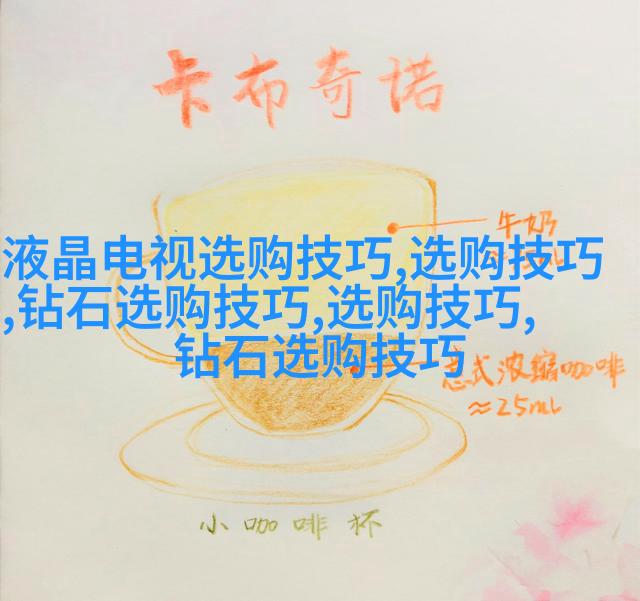 卡布奇诺
牛奶
液晶电视选购技巧,选购技巧
,钻石选购技巧,选购技巧,
钻石选购技巧
意式浓缩咖啡
≈25mL
小咖啡杯